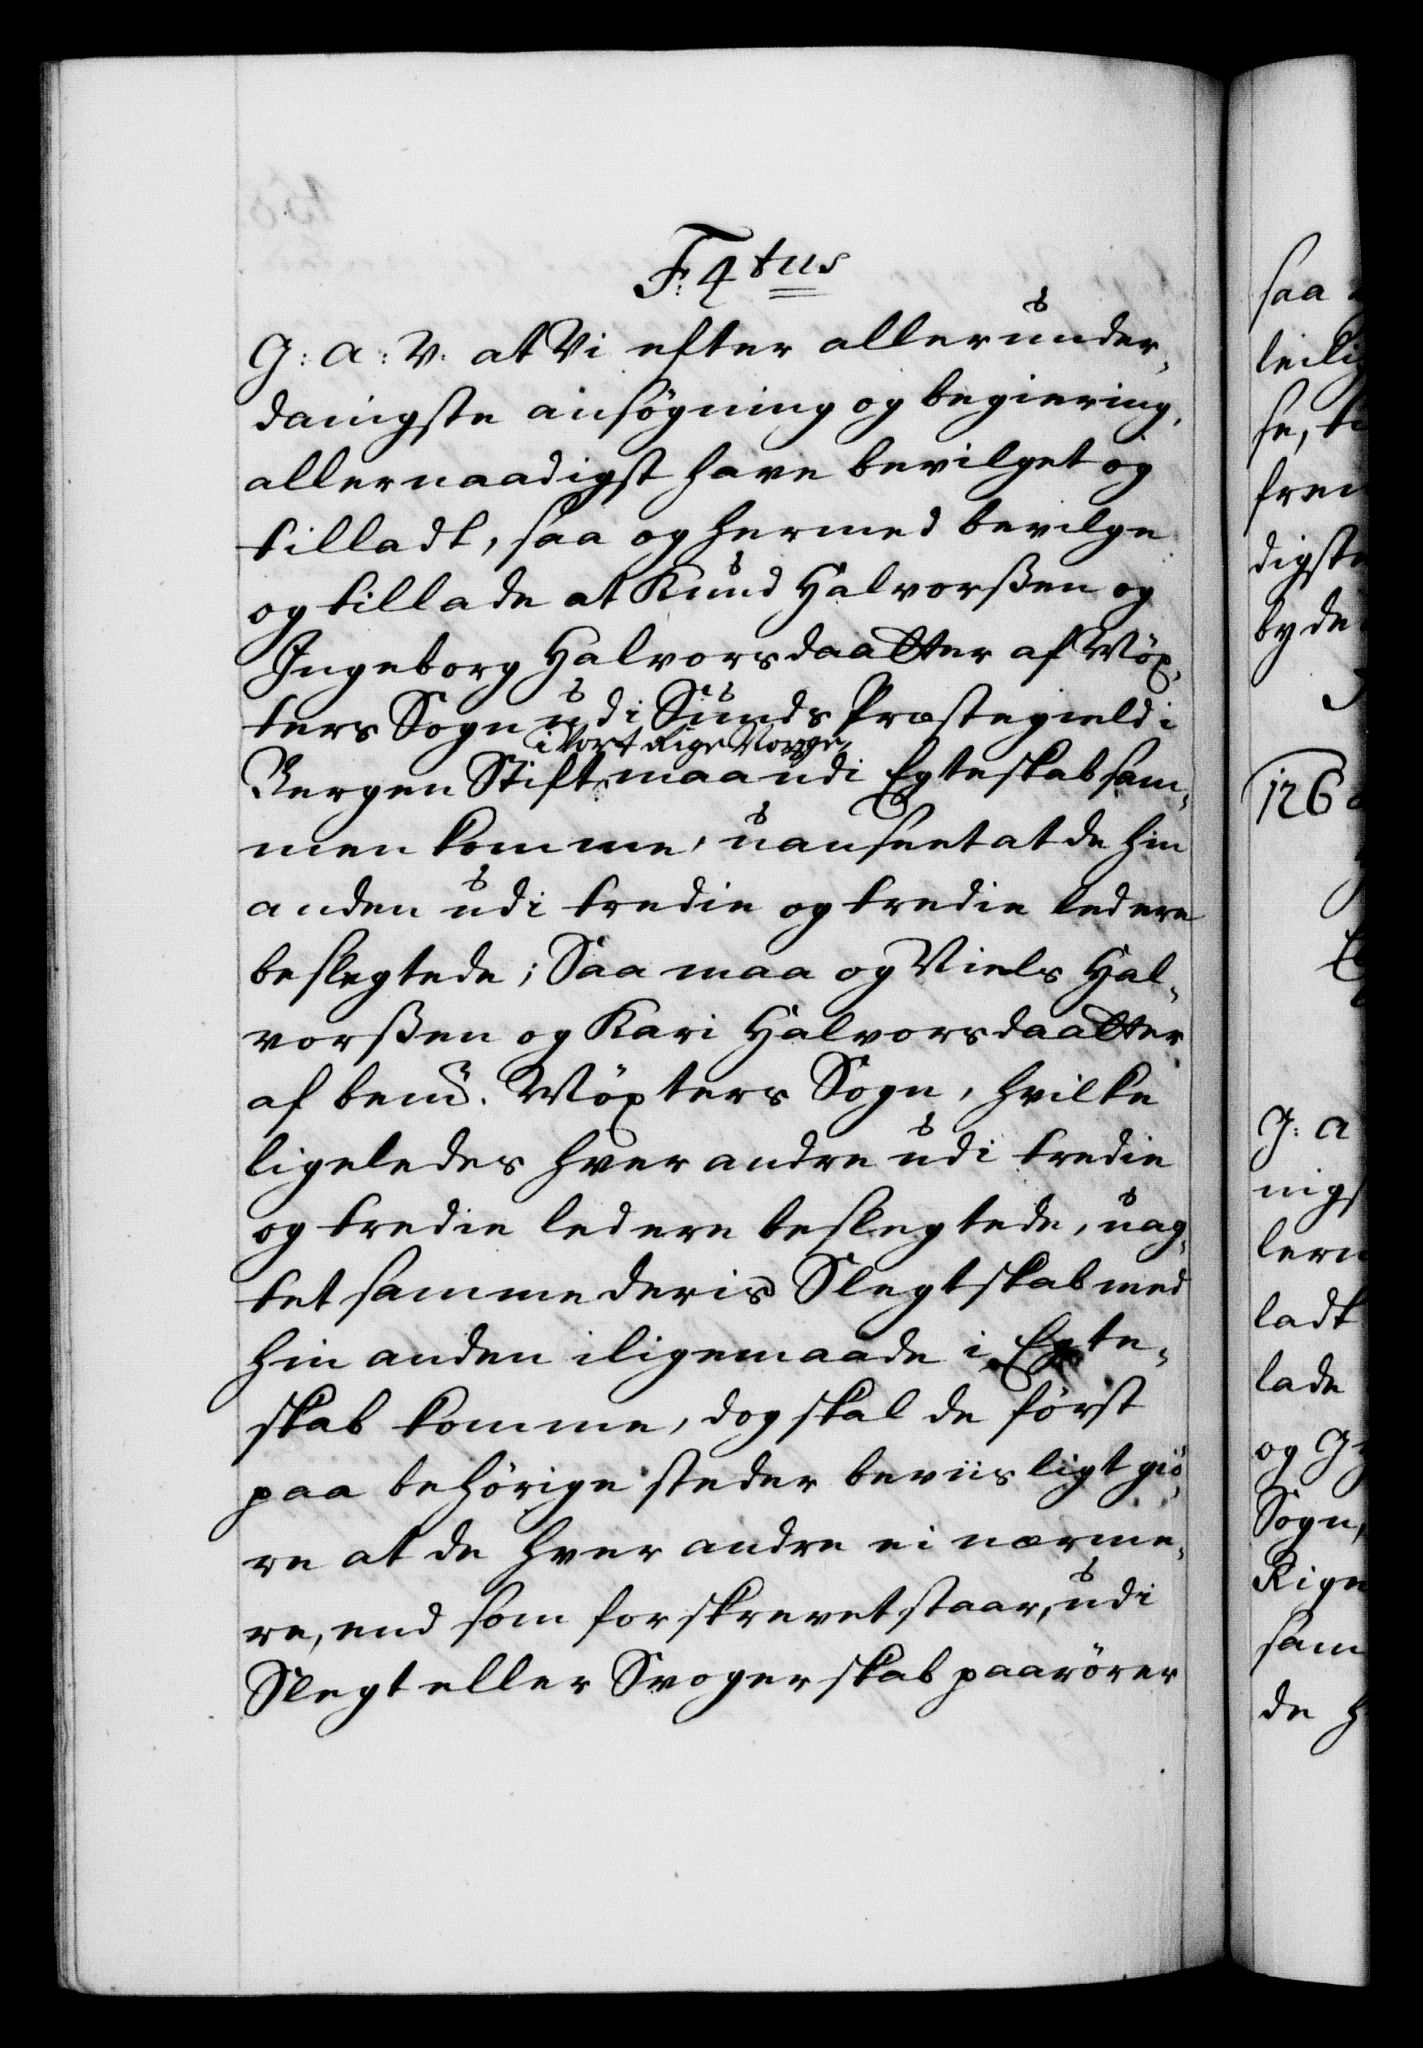 F: 4tus
G: A: V: at Vi efter allerunder„
danigste ansögning og begiering,
allernaadigst have bevilget og
tilladt, saa og hermed bevilge
og tillade at Knud Halvorßen og
Ingeborg Halvorsdaatter af Möx„
ters Sogn udi Sunds Præstegield i
i Vort Rige Norge
Bergen Stift, maa udi Egteskab sam„
men komme, uanseet at de hin
anden udi tredie og tredie leed ere
beslegtede; Saa maa og Niels Hal„
vorßen og Kari Halvorsdaatter
af bemte. Möxters Sogn, hvilke
ligeledes hver andre udi tredie
og tredie led ere beslegtede, uag„
tet samme deris Slegtskab med
hin anden i ligemaade i Egte„
skab komme, dog skal de först
paa behörige steder beviisligt giö„
re at de hver andre ei nærme„
re, end som forskrevet staar, udi
Slegt eller Svogerskab paarörer
saa
se,
digste
byde
126
G: A
nigs
ladt
lade
og
Sogn,
Rige
sam
de h